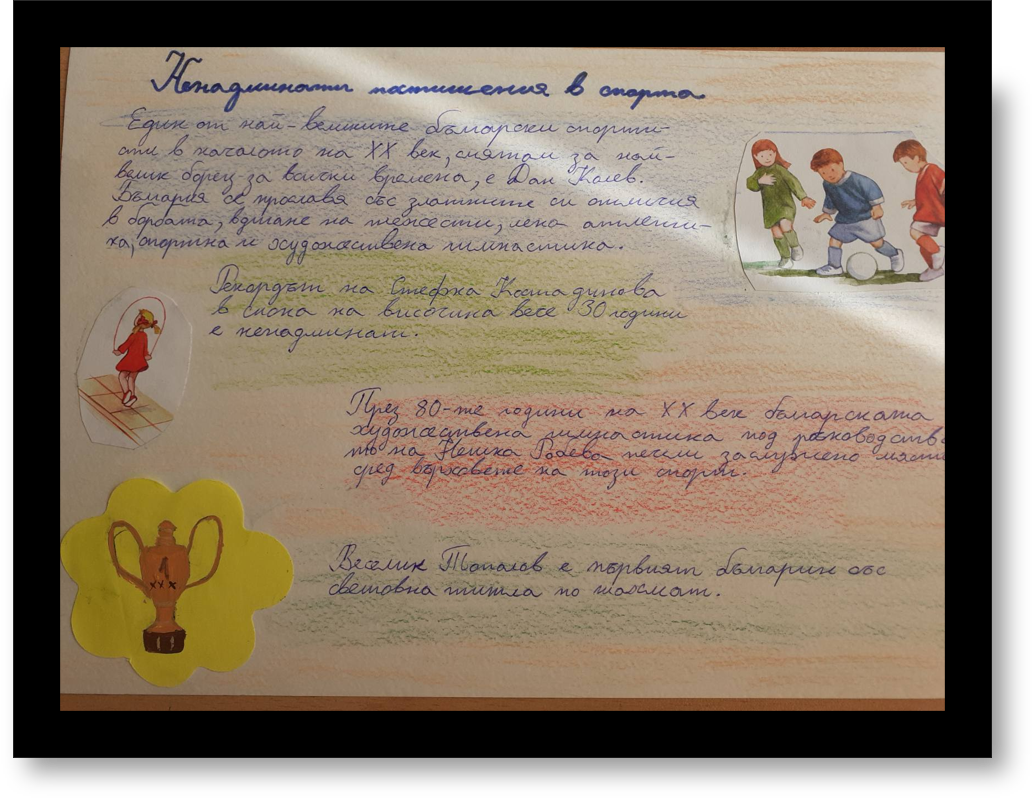 Ненадминати постижения в спорта
Един от най-великите български спорти-
сти в началото на XX век, смятан за най-
велик борец за всички времена, е Дан Колев.
България се прославя със златните си отличия
в борбата, вдигане на тежести, лека атлети-
ка, спортна и художествена гимнастика.
Рекордът на Стефка Костадинова
в скока на височина вече 30 години
е ненадминат.
През 80-те години на XX век българската
художествена гимнастика под ръководств
то на Нешка Робева печели заслужено място
сред върховете на този спорт.
Веселин Топалов е първият българин със
световна титла по шахмат.
1